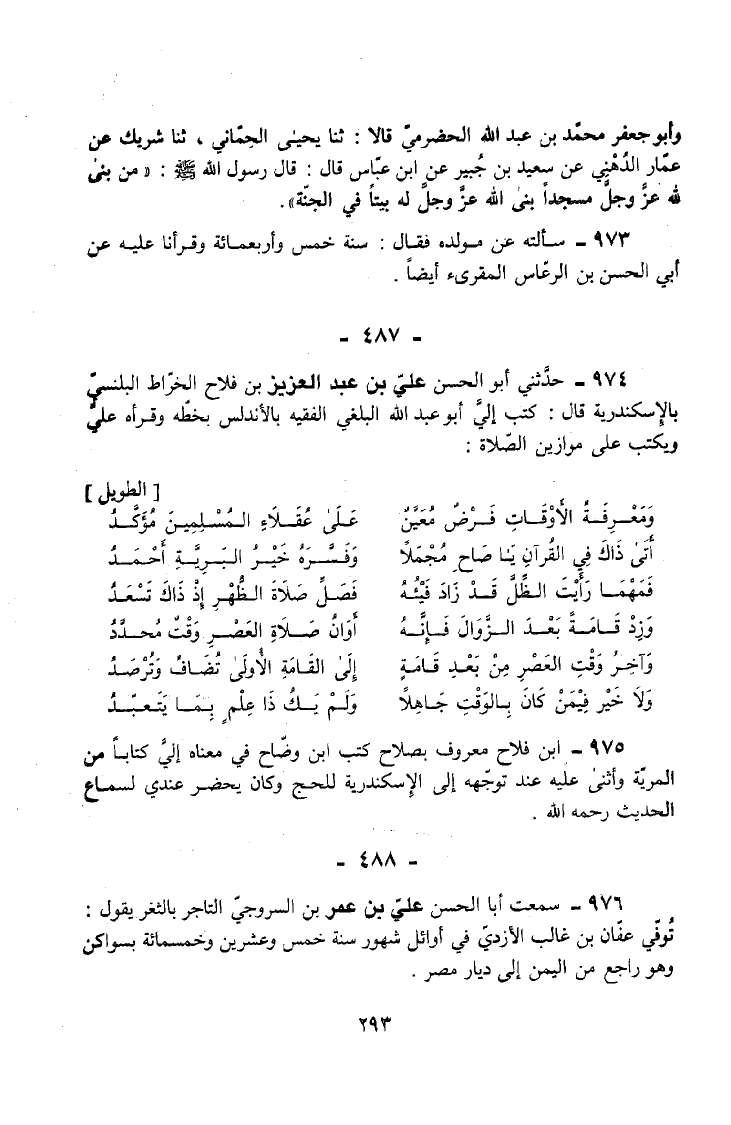 وأبو جعفر محمّد بن عبد الله الحضرميّ قالا : ثنا يحيىٰ الحِمّاني ، ثنا شريك عن
عمّار الدُهْنِي عن سعيد بن جُبير عن ابن عبّاس قال : قال رسول الله ﷺ : « من بنىٰ
لله عزَّ وجلَّ مسجداً بنىٰ الله عزَّ وجلَّ له بيتاً في الجنّة».
٩٧٣ ـ سألته عن مولده فقال : سنة خمس وأربعمائة وقرأنا عليه عن
أبي الحسن بن الرعّاس المقرىء أيضاً .
ـ ٤٨٧ ـ
٩٧٤ ـ حدَّثني أبو الحسن عليّ بن عبد العزيز بن فلاح الخرّاط البلنسيّ
بالإسكندرية قال : كتب إليَّ أبو عبد الله البلغي الفقيه بالأندلس بخطّه وقرأه عليَّ
ويكتب على موازين الصّلاة :
[ الطويل ]
وَمَعْرِفَةُ الأَوْقَاتِ فَرْضٌ مُعَيَّنٌ عَلَىٰ عُقَلاَءِ المُسْلِمِينَ مُؤَكَّدُ
أَتَىٰ ذَاكَ فِي القُرآنِ يَا صَاحِ مُجْمَلاً وَفَسَّرَهُ خَيْرُ البَرِيَّةِ أَحْمَدُ
فَمَهْمَا رَأَيْتَ الظِّلَّ قَدْ زَادَ فَيْئُهُ فَصَلِّ صَلاَةَ الظُّهْرِ إِذْ ذَاكَ تَسْعَدُ
وَزِدْ قَامَةً بَعْدَ الزَّوَالَ فَإِنَّهُ أَوَانُ صَلاَةِ العَصْرِ وَقْتٌ مُحدَّدُ
وَآخِرُ وَقْتِ العَصْرِ مِنْ بَعْدِ قَامَةٍ إِلَىٰ القَامَةِ الأُولَىٰ تُضَافُ وَتُرْصَدُ
وَلاَ خَيْر فِيْمَنْ كَانَ بِالوَقْتِ جَاهِلاً وَلَمْ يَكُ ذَا عِلْمٍ بِمَا يَتَعبَّدُ
٩٧٥ ـ ابن فلاح معروف بصلاح كتب ابن وضّاح في معناه إليَّ كتاباً من
المريّة وأثنىٰ عليه عند توجّهه إلى الإسكندرية للحج وكان يحضر عندي لسماع
الحديث رحمه الله .
ـ ٤٨٨ ـ
٩٧٦ ـ سمعت أبا الحسن عليّ بن عمر بن السروجيّ التاجر بالثغر يقول :
تُوفّي عفّان بن غالب الأزديّ في أوائل شهور سنة خمس وعشرين وخمسمائة بسواكن
وهو راجع من اليمن إلى ديار مصر .
٢٩٣